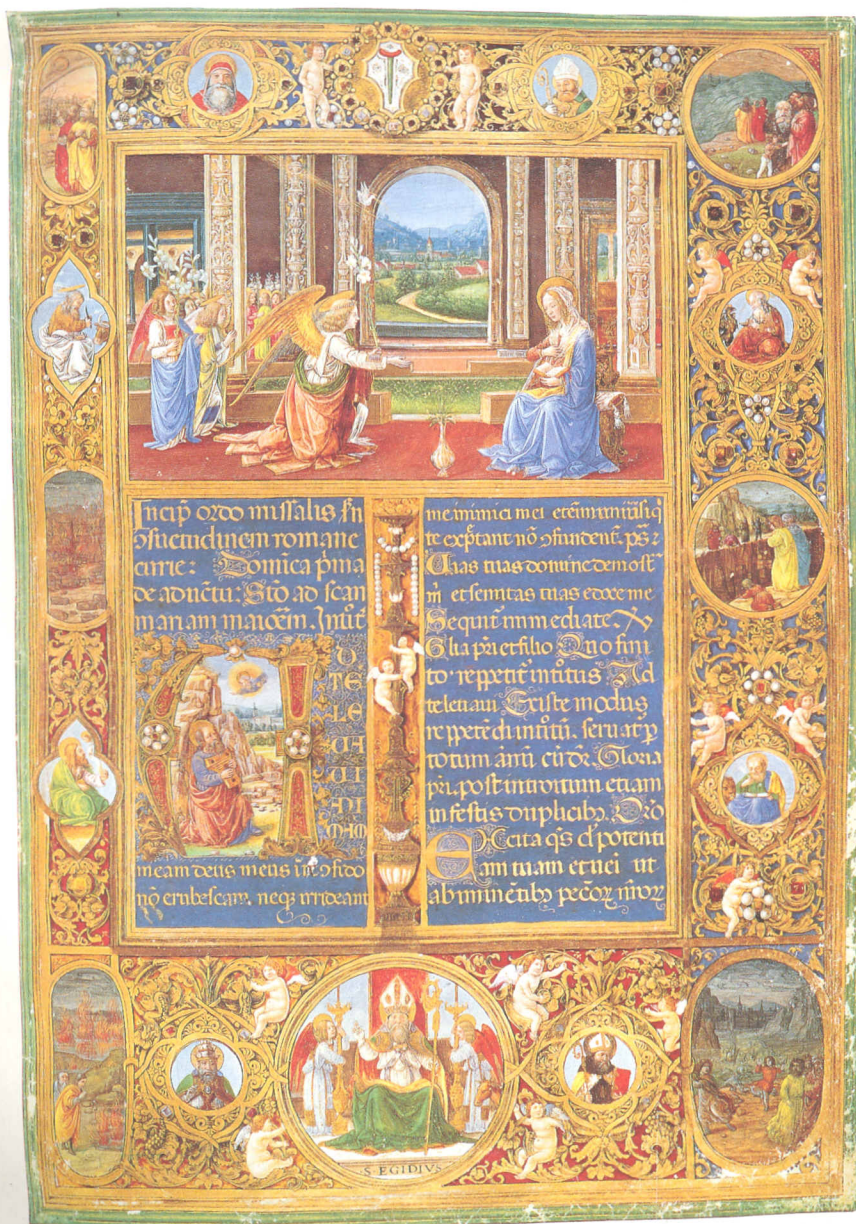 Incip̄ ordo missalis ẜn
ꝯsuetudinem romane
curie: Domīca p̄ma
de aduētu: Stō ad scan
mariam maiorēm. Intit̄
A
D
TE
LE
UA
UI
ANI
MAM
meam deus meus ī te ꝯfido
nō erubescam. neqꝫ irrideant
me inimici mei etēim uniũsiq
te exp̄tant nō ꝯfundent̄. ps᷒
Uias tuas domine demōst̄
m̄ et semitas tuas edoce me
Sequit̄ immediate. V̷
Glīa pr̄i et filio Quo fini
to reppetit̄ intōitus Ad
te leuaui. Et iste modus
reppetēdi intōitū. seruat̄ p
totum annū cū dr̄. Gloria
pr̄i. post introitum etiam
in festis duplicibꝫ. Oro
Excita qs dn̄e potenti
am tuam et ueī ut
ab iminētibꝫ pecōꝝ nr̄oꝝ
S. EGIDIVS